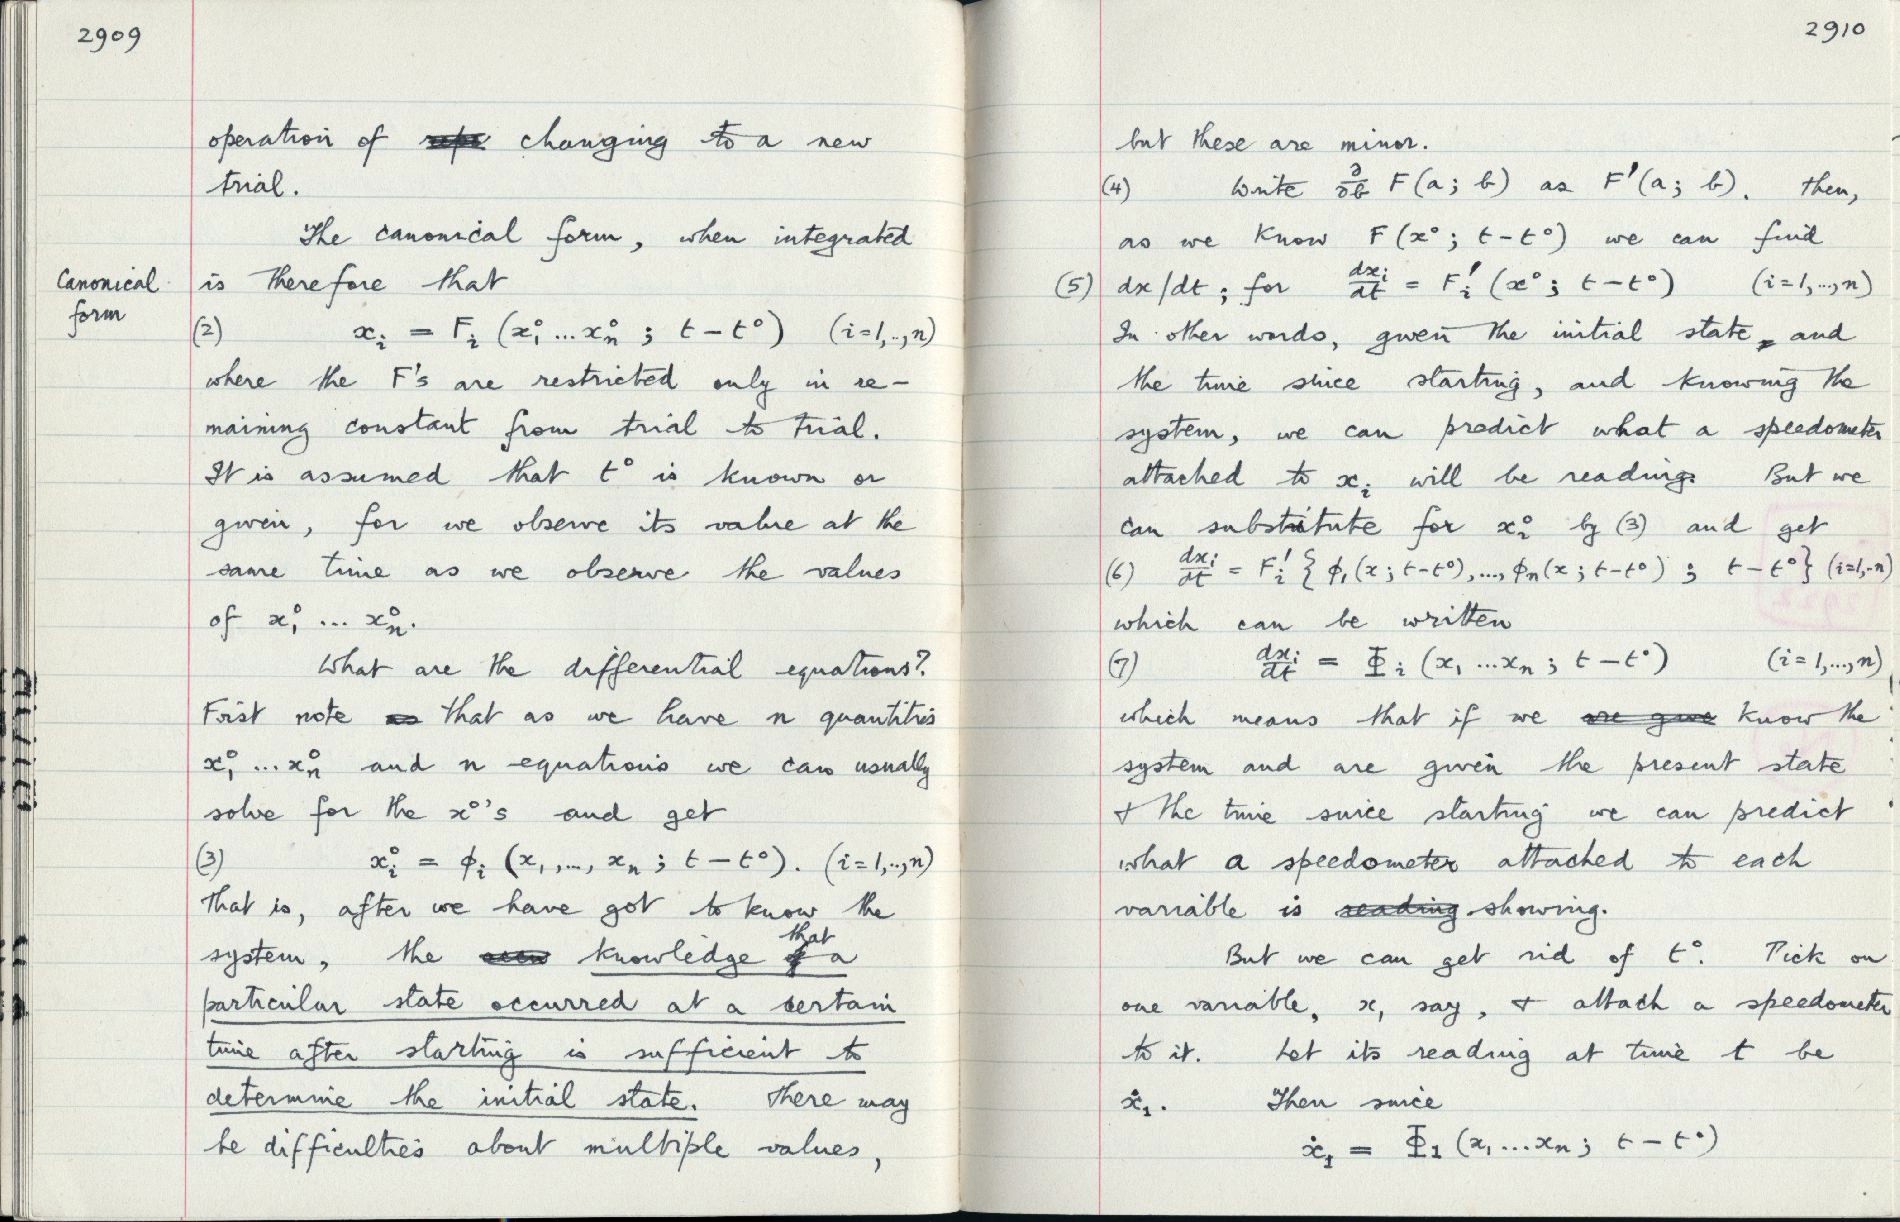 2909
operation of changing to a new
trial.
The canonical form, when integrated
Canonical form
is therefore that
(2) xᵢ = Fᵢ (x₁° ... xₙ° ; t − t°) (i=1,..,n)
where the F's are restricted only in re-
maining constant from trial to trial.
It is assumed that t° is known or
given, for we observe its value at the
same time as we observe the values
of x₁° ... xₙ°.
What are the differential equations?
First note that as we have n quantities
x₁° ... xₙ° and n equations we can usually
solve for the x°'s and get
(3) xᵢ° = ϕᵢ (x₁,..., xₙ ; t − t°). (i=1,..,n)
That is, after we have got to know the
system, the knowledge that a
particular state occurred at a certain
time after starting is sufficient to
determine the initial state. There may
be difficulties about multiple values,
2910
but these are minor.
(4) Write ∂/∂b F(a; b) as F'(a; b). Then,
as we know F(x°; t − t°) we can find
(5) dx/dt; for dxᵢ/dt = Fᵢ' (x°; t − t°) (i=1,..,n)
In other words, given the initial state, and
the time since starting, and knowing the
system, we can predict what a speedometer
attached to xᵢ will be reading. But we
can substitute for xᵢ° by (3) and get
(6) dxᵢ/dt = Fᵢ' { ϕ₁(x; t−t°),..., ϕₙ(x; t−t°) ; t − t°} (i=1,..n)
which can be written
(7) dxᵢ/dt = Φᵢ (x₁ ... xₙ; t − t°) (i=1,...,n)
which means that if we know the
system and are given the present state
& the time since starting we can predict
what a speedometer attached to each
variable is showing.
But we can get rid of t°. Pick on
one variable, x₁ say, & attach a speedometer
to it. Let its reading at time t be
ẋ₁. Then since
ẋ₁ = Φ₁ (x₁ ... xₙ; t − t°)